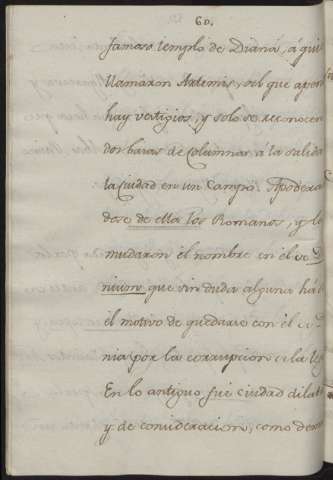 60.
famoso templo de Diana, á qui
llamaron Artemis, del que apen
hay vestigios, y solo se reconocen
dos basas de Columnas a la salida
la Ciudad en un Campo. Apodera
dose de ella los Romanos, y le
mudaron el nombre en el de
nium que sin duda alguna há
el motivo de quedarse con el
nia por la corrupcion de la
En lo antiguo fue ciudad dilat
y de consideracion, como dem